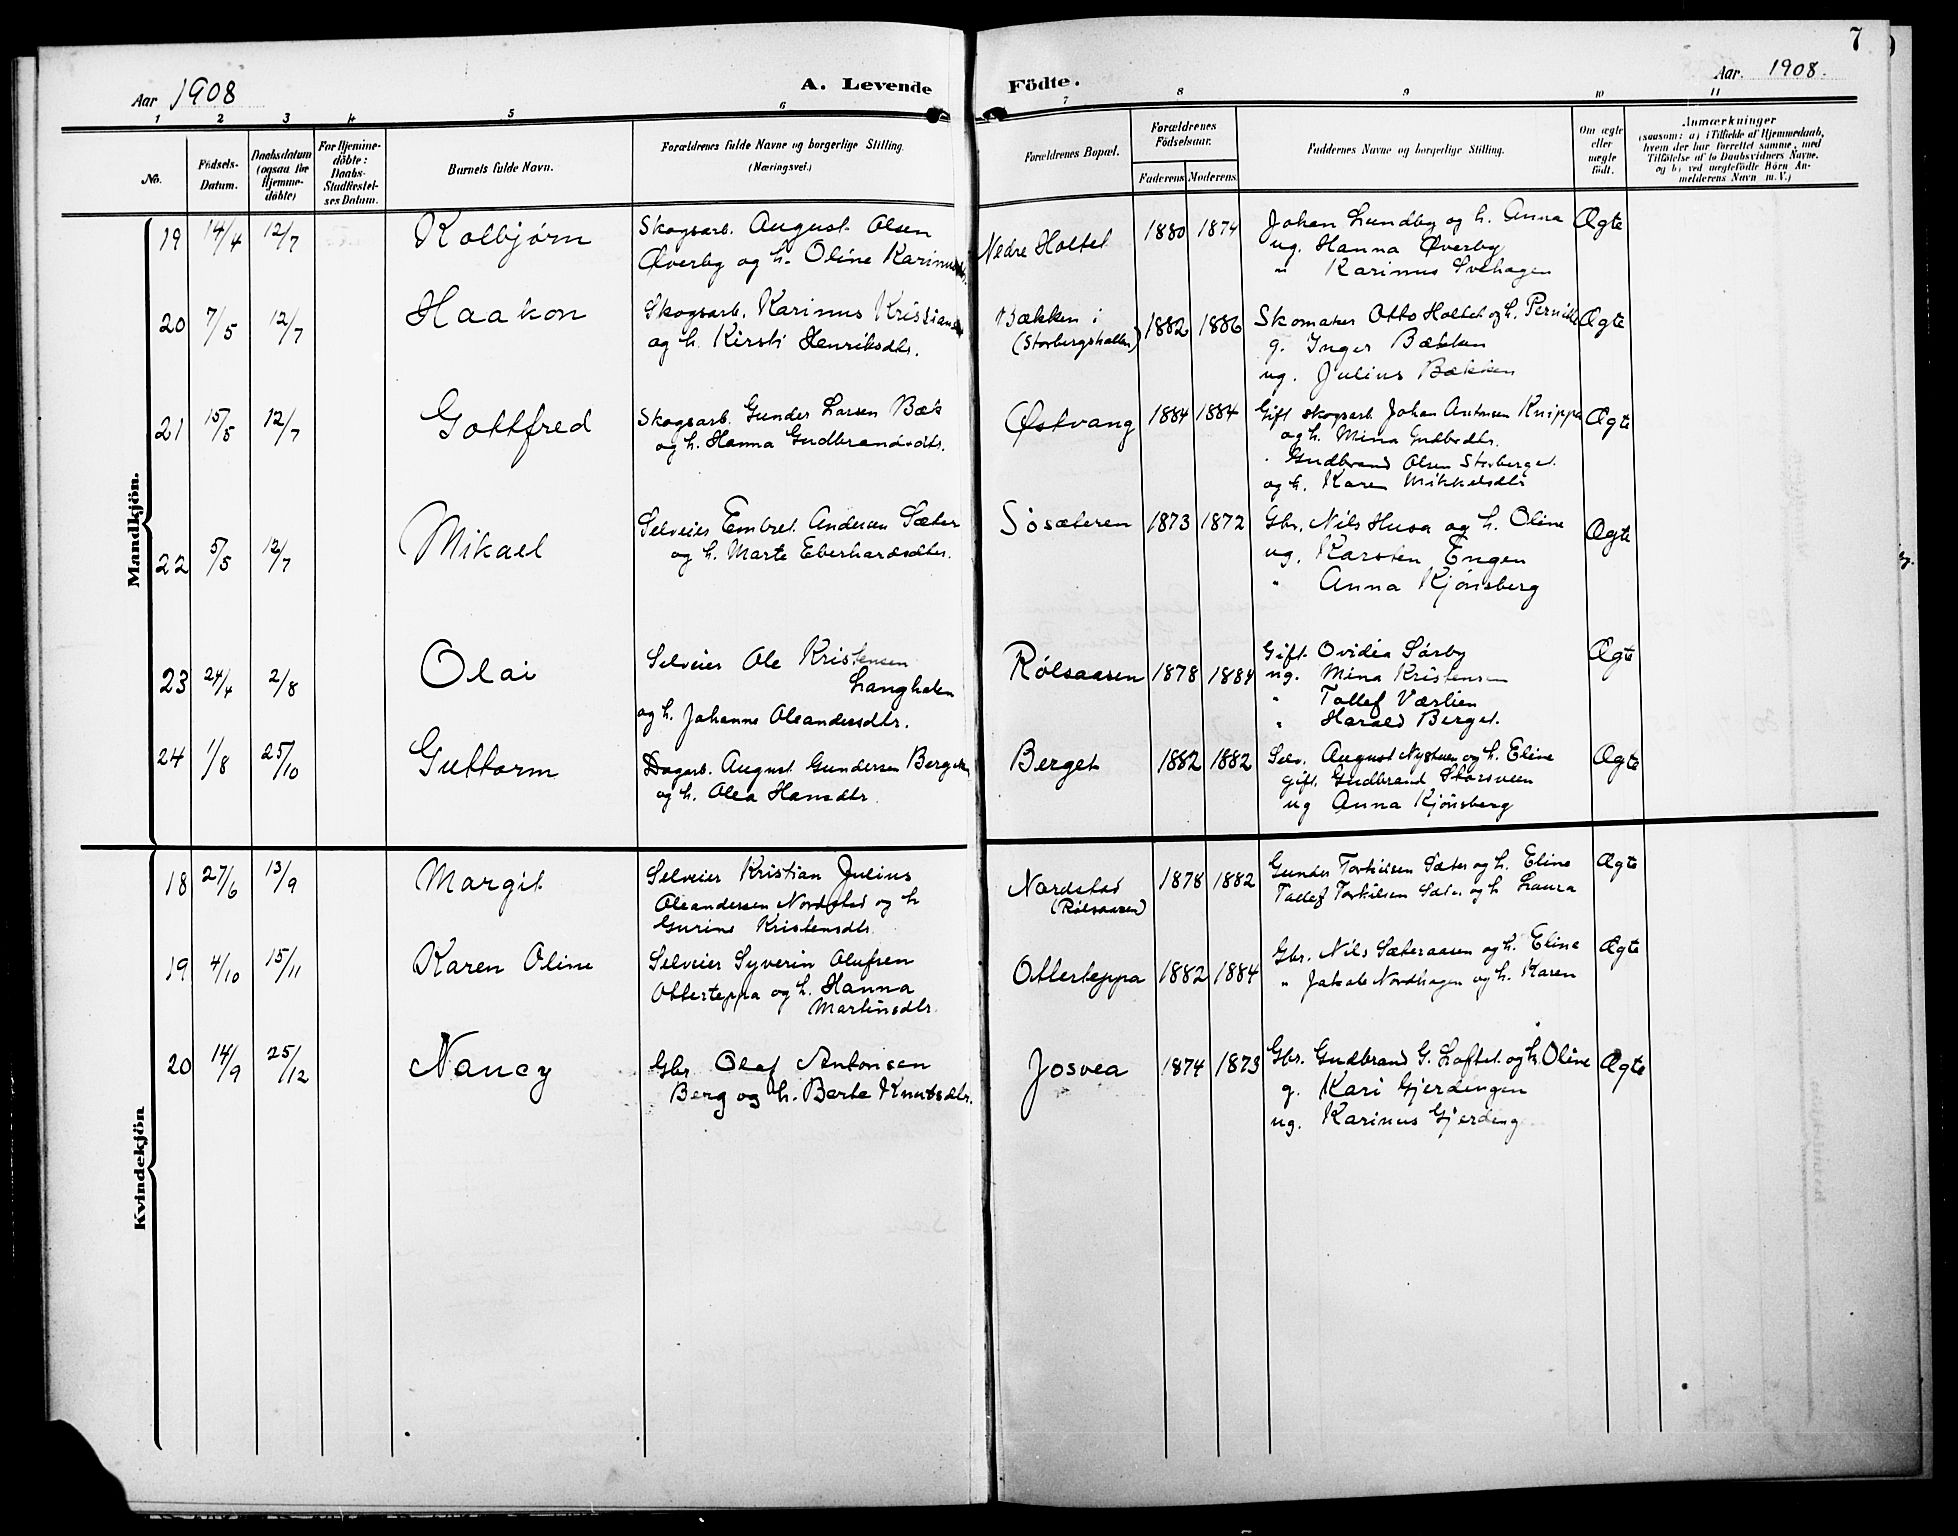 7
Aar 1908
A. Levende
Födte.
Aar. 1908.
1 2 3 4 5 6 7 8 9 10 11
No.
Födsels-
Datum.
Daabsdatum
(ogsaa for
Hjemme-
döbte)
For Hjemme-
döbte:
Daabs-
Stadfæstel-
ses Datum.
Barnets fulde Navn.
Forældrenes fulde Navne og borgerlige Stilling.
(Næringsvei.)
Forældrenes Bopæl.
Forældrenes
Födselsaar.
Faderens Moderens.
Faddernes Navne og borgerlige Stilling.
Om ægte
eller
uægte
födt.
Anmærkninger
(saasom: a) i Tilfælde af Hjemmedaab,
hvem der har forrettet samme, med
Tilföielse af to Daabsvidners Navne.
og b) ved uægtefödte Börn An-
melderens Navn m. V.)
Mandkjön.
19 14/4 12/7 Kolbjørn Skogsarb. August Olsen Nedre Holtet 1880 1874 Johan Lundby og h. Anna Ægte
Øverby og h. Oline ug. Hanna Øverby
" Karinus Svehagen
20 7/5 12/7 Haakon Skogsarb. Karinus Bækken i 1882 1886 Skomaker Otto Holtet og h. Pernille Ægte
og h. Kirsti Henriksdtr. g. Inger Bækken
ug. Julius Bækken
21 15/5 12/7 Gottfred Skogsarb. Gunder Larsen Bæk Østvang 1884 1884 Gift skogsarb. Johan Antonsen Knippa Ægte
og h. Hanna Gudbrandsdtr. og h. Mina Gudbrdtr.
Gudbrand Olsen Storberget
og h. Karen Mikkelsdtr
22 5/5 12/7 Mikael Selveier Embret Andersen Sæter Søsæteren 1873 1872 Gbr. Nils Husa og h. Oline Ægte
og h. Marte Eberhardsdtr. ug. Karsten Engen
" Anna Kjønsberg
23 24/4 2/8 Olai Selveier Ole Kristensen Rølsaasen 1878 1884 Gift. Ovidia Sørby Ægte
Langhalen ug. Mina Kristensen
og h. Johanne Oleandersdtr. " Tollef Værlien
" Harald Berget.
24 1/8 25/10 Guttorm Dagarb. August Gundersen Berget 1882 1882 Selv. August Nystuen og h. Eline Ægte
og h. Olea Hansdtr. gift. Gudbrand Storsveen
ug Anna Kjønsberg
Kvindekjön
18 27/6 13/9 Margit Selveier Kristian Julius Nordstad 1878 1882 Gunder Torkilsen Sæter og h. Eline Ægte
Oleandersen Nordstad og h (Rølsaasen) Tollef Torkilsen Sæter og h Laura
Gurine Kristensdtr.
19 4/10 15/11 Karen Oline Selveier Syverin Olufsen Otterteppa 1882 1884 Gbr. Nils Sæteraasen og h. Eline Ægte
Otterteppa og h. Hanna " Jakob Nordhagen og h. Karen
Martinsdtr.
20 14/9 25/12 Nancy Gbr. Olaf Antonsen Josvea 1874 1873 Gbr. Gudbrand G. Loftet og h. Oline Ægte
Berg og h. Berte Knutsdtr. g. Kari Gjerdingen
ug. Karinus Gjerding